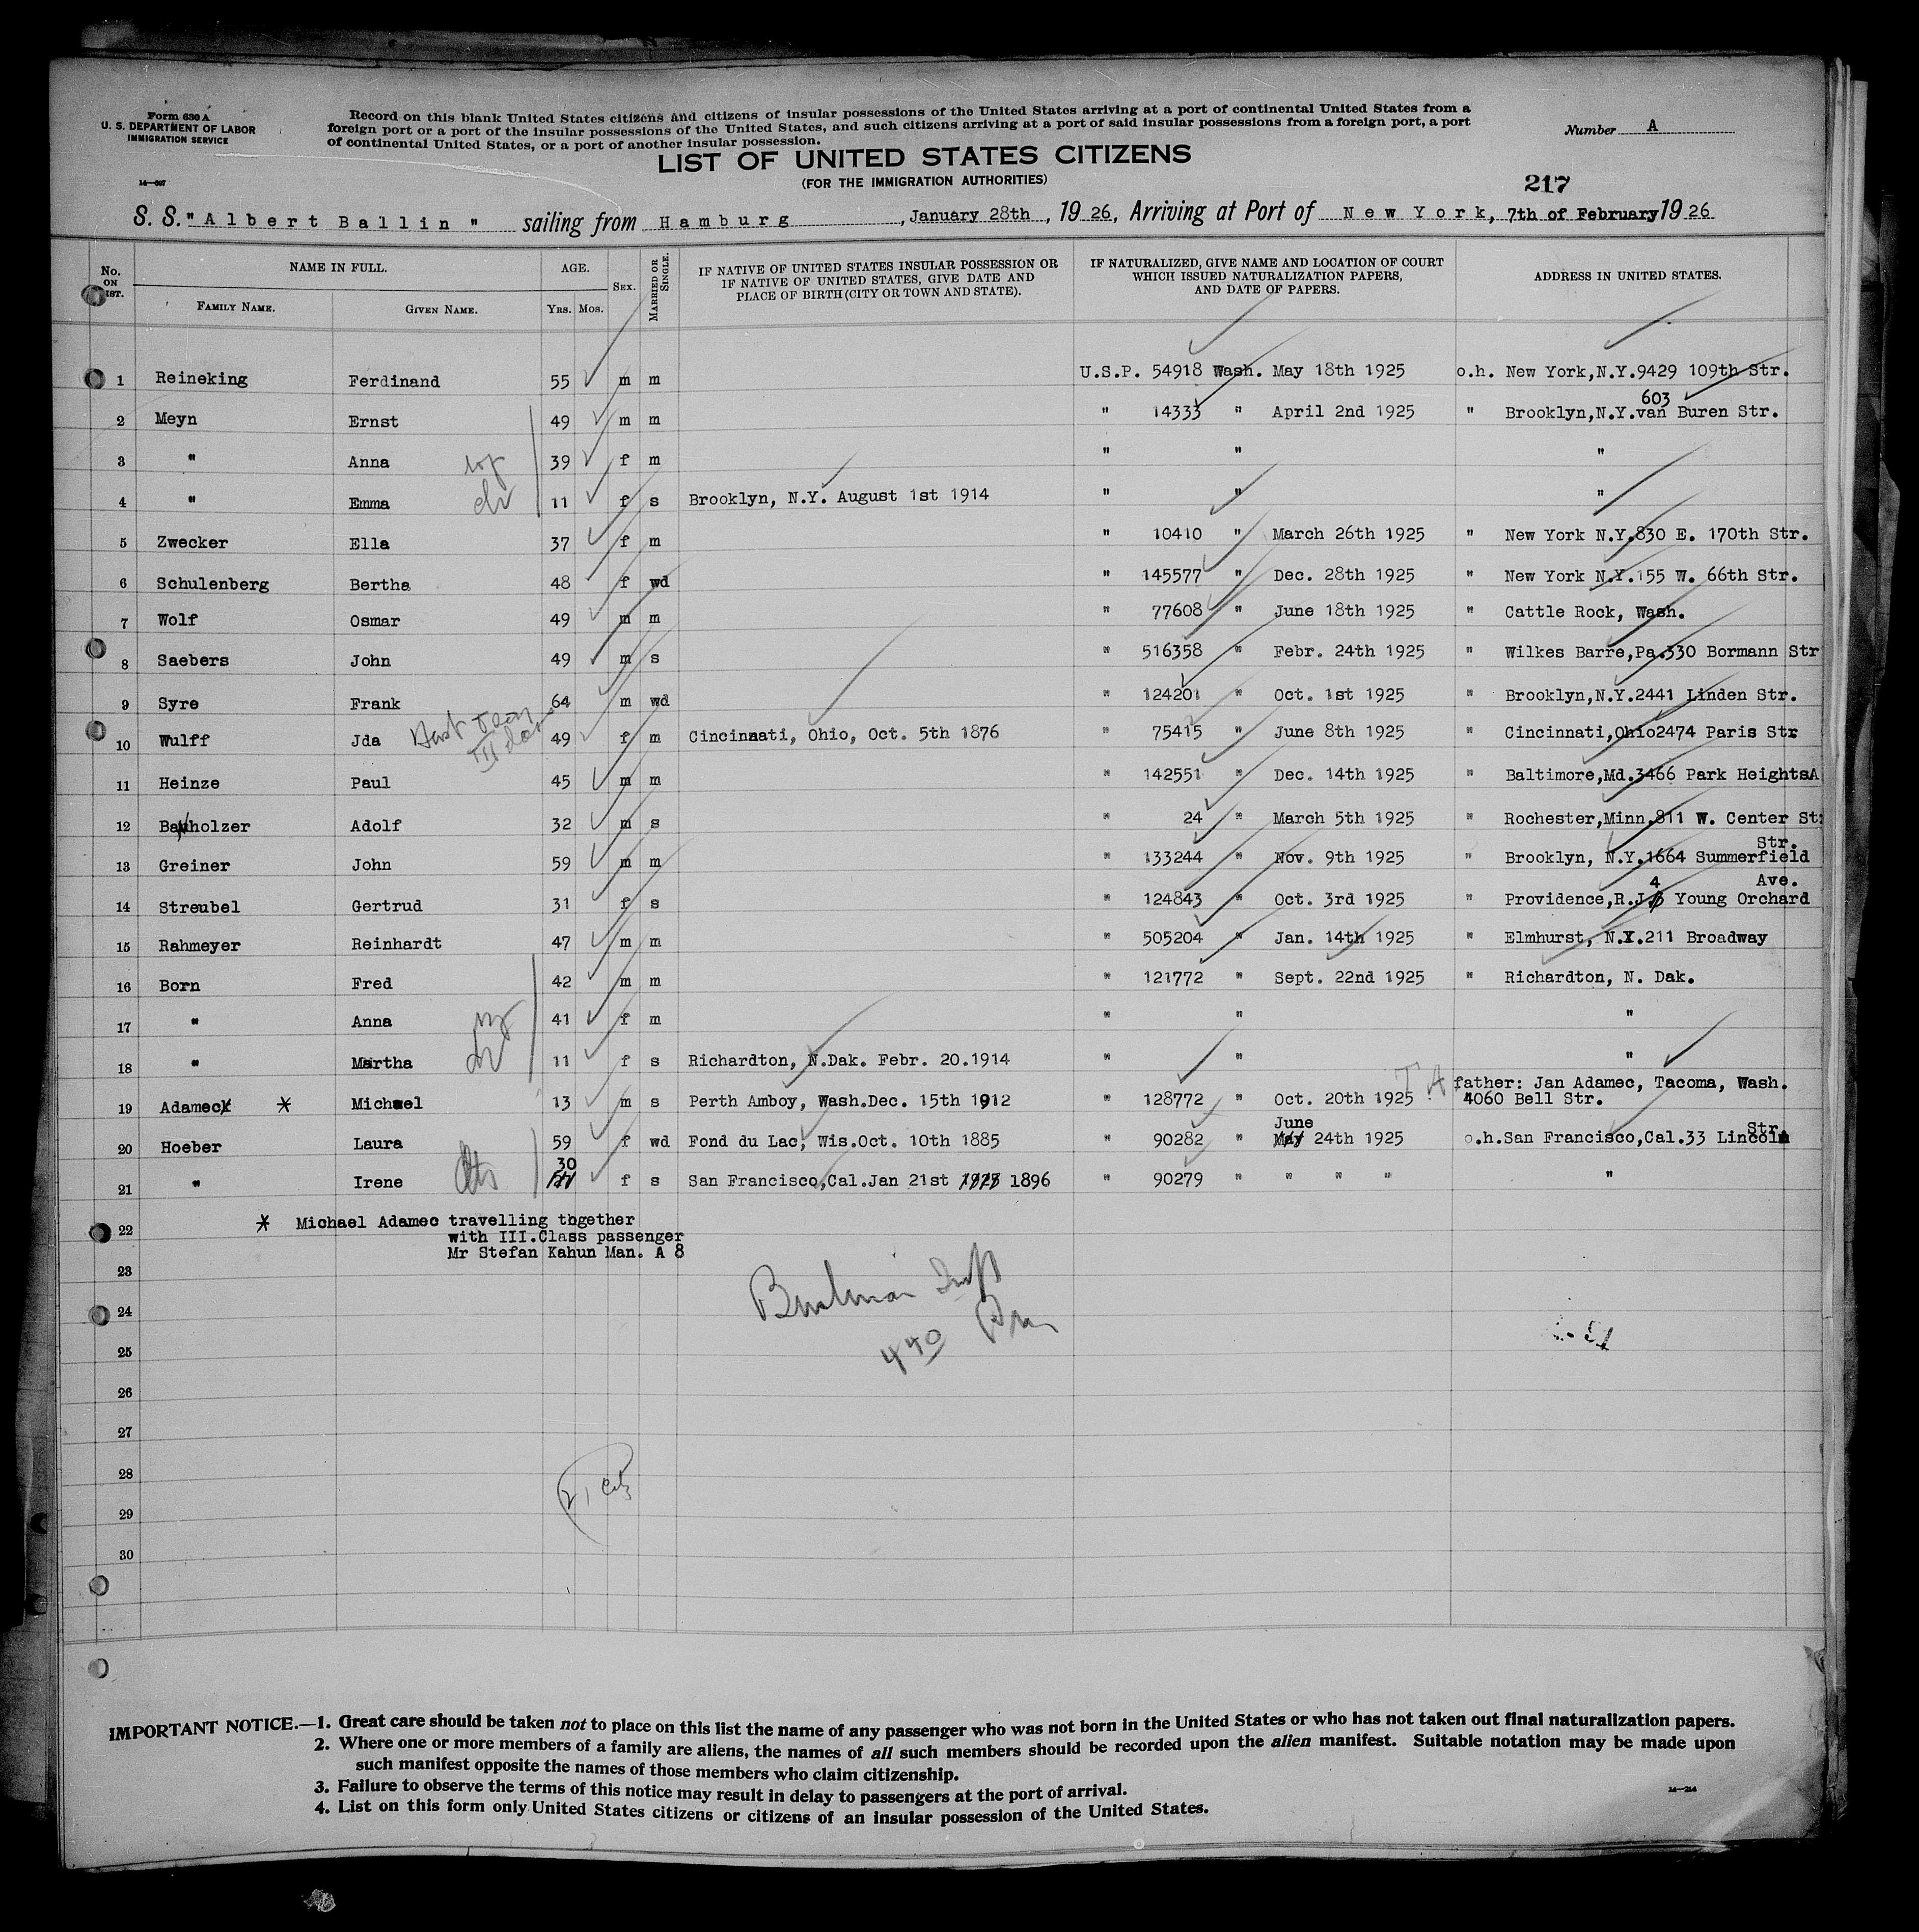 Form 630 A
U. S. DEPARTMENT OF LABOR
IMMIGRATION SERVICE
14—507
Record on this blank United States citizens and citizens of insular possessions of the United States arriving at a port of continental United States from a
foreign port or a port of the insular possessions of the United States, and such citizens arriving at a port of said insular possessions from a foreign port, a port
of continental United States, or a port of another insular possession.
Number A
LIST OF UNITED STATES CITIZENS
(FOR THE IMMIGRATION AUTHORITIES)
217
S. S. "Albert Ballin" sailing from Hamburg, January 28th, 1926, Arriving at Port of New York, 7th of February 1926
No. ON LIST. NAME IN FULL. AGE. SEX. MARRIED OR SINGLE. IF NATIVE OF UNITED STATES INSULAR POSSESSION OR IF NATIVE OF UNITED STATES, GIVE DATE AND PLACE OF BIRTH (CITY OR TOWN AND STATE). IF NATURALIZED, GIVE NAME AND LOCATION OF COURT WHICH ISSUED NATURALIZATION PAPERS, AND DATE OF PAPERS. ADDRESS IN UNITED STATES.
FAMILY NAME. GIVEN NAME. YRS. MOS.
1 Reineking Ferdinand 55 m m U.S.P. 54918 Wash. May 18th 1925 o.h. New York,N.Y.9429 109th Str.
2 Meyn Ernst 49 m m " 14333 " April 2nd 1925 " Brooklyn,N.Y. 603 van Buren Str.
3 " Anna 39 f m " " "
4 " Emma 11 f s Brooklyn, N.Y. August 1st 1914 " " "
5 Zwecker Ella 37 f m " 10410 " March 26th 1925 " New York N.Y.830 E. 170th Str.
6 Schulenberg Bertha 48 f wd " 145577 " Dec. 28th 1925 " New York N.Y.155 W. 66th Str.
7 Wolf Osmar 49 m m " 77608 " June 18th 1925 " Cattle Rock, Wash.
8 Saebers John 49 m s " 516358 " Febr. 24th 1925 " Wilkes Barre,Pa.330 Bormann Str
9 Syre Frank 64 m wd " 124201 " Oct. 1st 1925 " Brooklyn,N.Y.2441 Linden Str.
10 Wulff Jda 49 f m Cincinnati, Ohio, Oct. 5th 1876 " 75415 " June 8th 1925 " Cincinnati,Ohio2474 Paris Str
11 Heinze Paul 45 m m " 142551 " Dec. 14th 1925 " Baltimore,Md.3466 Park HeightsA
12 Banholzer Adolf 32 m s " 24 " March 5th 1925 " Rochester,Minn.811 W. Center St
13 Greiner John 59 m m " 133244 " Nov. 9th 1925 " Brooklyn, N.Y.1664 Summerfield Str.
14 Streubel Gertrud 31 f s " 124843 " Oct. 3rd 1925 " Providence,R.J. 4 Young Orchard Ave.
15 Rahmeyer Reinhardt 47 m m " 505204 " Jan. 14th 1925 " Elmhurst, N.Y.211 Broadway
16 Born Fred 42 m m " 121772 " Sept. 22nd 1925 " Richardton, N. Dak.
17 " Anna 41 f m " " "
18 " Martha 11 f s Richardton, N.Dak. Febr. 20.1914 " " "
19 Adamec * Michael 13 m s Perth Amboy, Wash.Dec. 15th 1912 " 128772 " Oct. 20th 1925 father: Jan Adamec, Tacoma, Wash.
4060 Bell Str.
20 Hoeber Laura 59 f wd Fond du Lac, Wis.Oct. 10th 1885 " 90282 " June 24th 1925 o.h.San Francisco,Cal.33 Lincoln Str.
21 " Irene 30 f s San Francisco,Cal.Jan 21st 1896 " 90279 " " " " "
22 * Michael Adamec travelling together
with III.Class passenger
Mr Stefan Kahun Man. A 8
23
24
440
25
26
27
28
29
30
IMPORTANT NOTICE.—1. Great care should be taken not to place on this list the name of any passenger who was not born in the United States or who has not taken out final naturalization papers.
2. Where one or more members of a family are aliens, the names of all such members should be recorded upon the alien manifest. Suitable notation may be made upon
such manifest opposite the names of those members who claim citizenship.
3. Failure to observe the terms of this notice may result in delay to passengers at the port of arrival.
4. List on this form only United States citizens or citizens of an insular possession of the United States.
14—214